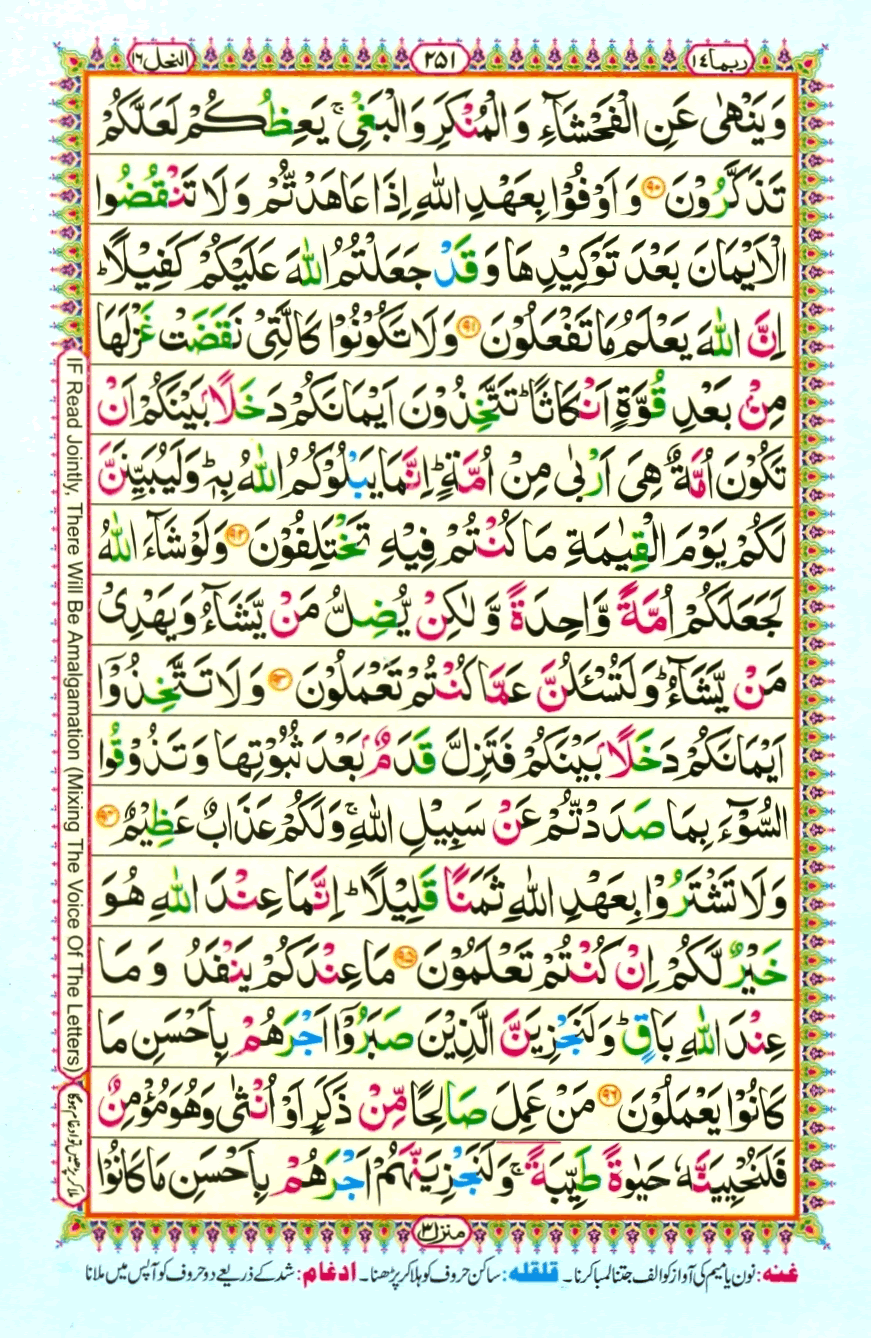 ربما ١٤
٢٥١
النحل ١٦
وَيَنْهٰى عَنِ الْفَحْشَآءِ وَالْمُنْكَرِ وَالْبَغْيِ ۚ يَعِظُكُمْ لَعَلَّكُمْ
تَذَكَّرُوْنَ ﴿۹۰﴾ وَاَوْفُوْا بِعَهْدِ اللّٰهِ اِذَا عَاهَدْتُّمْ وَلَا تَنْقُضُوا
الْاَيْمَانَ بَعْدَ تَوْكِيْدِهَا وَقَدْ جَعَلْتُمُ اللّٰهَ عَلَيْكُمْ كَفِيْلًا ؕ
اِنَّ اللّٰهَ يَعْلَمُ مَا تَفْعَلُوْنَ ﴿۹۱﴾ وَلَا تَكُوْنُوْا كَالَّتِيْ نَقَضَتْ غَزْلَهَا
مِنْۢ بَعْدِ قُوَّةٍ اَنْكَاثًا ؕ تَتَّخِذُوْنَ اَيْمَانَكُمْ دَخَلًاۢ بَيْنَكُمْ اَنْ
تَكُوْنَ اُمَّةٌ هِيَ اَرْبٰى مِنْ اُمَّةٍ ؕ اِنَّمَا يَبْلُوْكُمُ اللّٰهُ بِهٖ ؕ وَلَيُبَيِّنَنَّ
لَكُمْ يَوْمَ الْقِيٰمَةِ مَا كُنْتُمْ فِيْهِ تَخْتَلِفُوْنَ ﴿۹۲﴾ وَلَوْ شَآءَ اللّٰهُ
لَجَعَلَكُمْ اُمَّةً وَّاحِدَةً وَّلٰكِنْ يُّضِلُّ مَنْ يَّشَآءُ وَيَهْدِيْ
مَنْ يَّشَآءُ ؕ وَلَتُسْـَٔلُنَّ عَمَّا كُنْتُمْ تَعْمَلُوْنَ ﴿۹۳﴾ وَلَا تَتَّخِذُوْۤا
اَيْمَانَكُمْ دَخَلًاۢ بَيْنَكُمْ فَتَزِلَّ قَدَمٌۢ بَعْدَ ثُبُوْتِهَا وَتَذُوْقُوا
السُّوْٓءَ بِمَا صَدَدْتُّمْ عَنْ سَبِيْلِ اللّٰهِ ۚ وَلَكُمْ عَذَابٌ عَظِيْمٌ ﴿۹۴﴾
وَلَا تَشْتَرُوْا بِعَهْدِ اللّٰهِ ثَمَنًا قَلِيْلًا ؕ اِنَّمَا عِنْدَ اللّٰهِ هُوَ
خَيْرٌ لَّكُمْ اِنْ كُنْتُمْ تَعْلَمُوْنَ ﴿۹۵﴾ مَا عِنْدَكُمْ يَنْفَدُ وَمَا
عِنْدَ اللّٰهِ بَاقٍ ؕ وَلَنَجْزِيَنَّ الَّذِيْنَ صَبَرُوْۤا اَجْرَهُمْ بِاَحْسَنِ مَا
كَانُوْا يَعْمَلُوْنَ ﴿۹۶﴾ مَنْ عَمِلَ صَالِحًا مِّنْ ذَكَرٍ اَوْ اُنْثٰى وَهُوَ مُؤْمِنٌ
فَلَنُحْيِيَنَّهٗ حَيٰوةً طَيِّبَةً ۚ وَلَنَجْزِيَنَّهُمْ اَجْرَهُمْ بِاَحْسَنِ مَا كَانُوْا
منزل ٣
غنہ: نون یا میم کی آواز کو الف جتنا لمبا کرنا۔ قلقلہ: ساکن حروف کو ہلا کر پڑھنا۔ ادغام: شد کے ذریعے دو حروف کو آپس میں ملانا
IF Read Jointly, There Will Be Amalgamation (Mixing The Voice Of The Letters)
ملا کر پڑھیں تو ادغام ہوگا